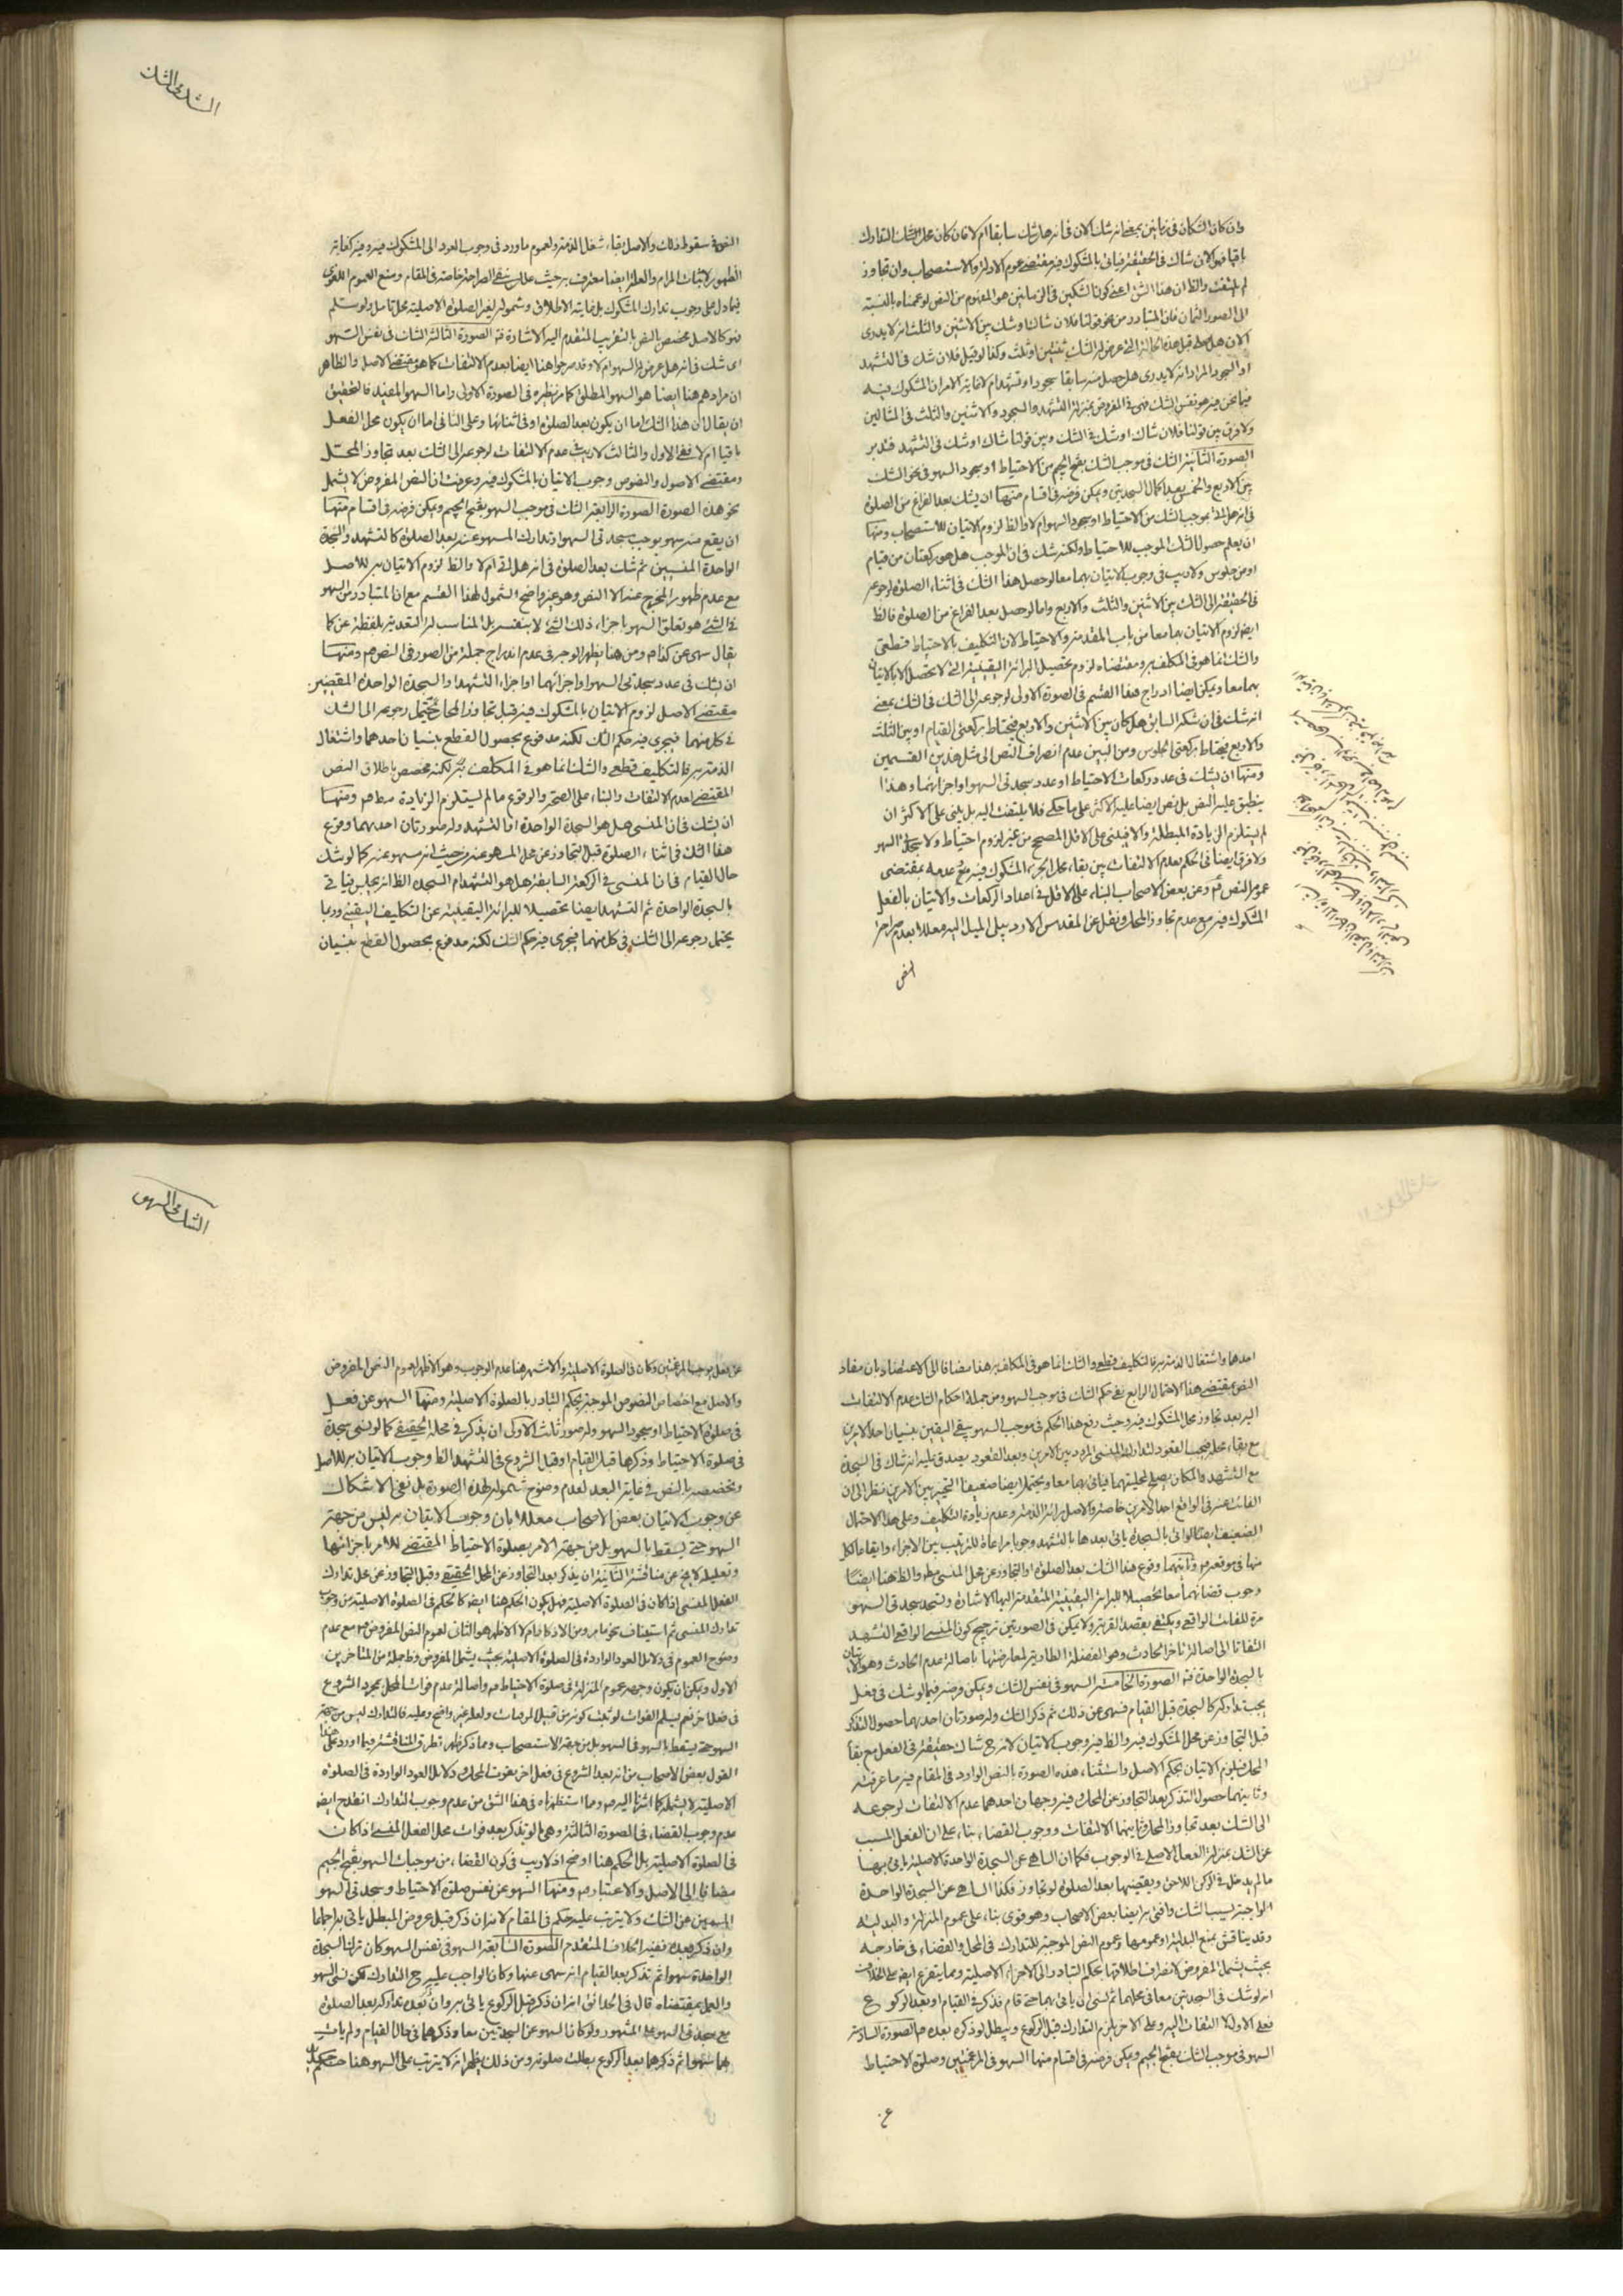 وان كان الشكان في زمانين بمعنى انه شك الان في انه هل شك سابقا ام لا فان كان محل الشك التدارك
باقيا فهو الان شاك في الحقيقة فياتي بالمشكوك فيه بمقتضى عموم الادلة والاستصحاب وان تجاوز
لم يلتفت والظ ان هذا الشق اعني كون الشكين في الزمانين هو المفهوم من النص لو عممناه بالنسبة
الى الصور الثمان فان المتبادر من نحو قولنا فلان شاك او شك بين الاثنين والثلث انه لا يدرى
الان هل صلى قبل هذه الحالة التي عرض له الشك ثنتين او ثلث وكذا لو قيل فلان شك في التشهد
او السجود المراد انه لا يدرى هل حصل منه سابقا سجود او تشهد ام لا غاية الامر ان المشكوك فيه
فيما نحن فيه هو نفس الشك فهي في المفروض بمنزلة التشهد والسجود والاثنين والثلث في المثالين
ولا فرق بين قولنا فلان شاك او شك في الشك وبين قولنا شاك او شك في التشهد فتدبر
الصورة الثانية الشك في موجب الشك بفتح الجيم من الاحتياط او سجود السهو في نحو الشك
بين الاربع والخمس بعد اكمال السجدتين ويمكن فرضه في اقسام منها ان يشك بعد الفراغ من الصلوة
في انه هل اتى بموجب الشك من الاحتياط او سجود السهو ام لا والظ لزوم الاتيان للاستصحاب ومنها
ان يعلم حصول الشك الموجب للاحتياط ولكنه شك في ان الموجب هل هو ركعتان من قيام
او من جلوس ولا ريب في وجوب الاتيان بهما معا لو حصل هذا الشك في اثناء الصلوة لرجوعه
في الحقيقة الى الشك بين الاثنين والثلث والاربع واما لو حصل بعد الفراغ من الصلوة فالظ
ايضا لزوم الاتيان بهما معا من باب المقدمة والاحتياط لان التكليف بالاحتياط قطعي
والشك انما هو في المكلف به ومقتضاه لزوم تحصيل البرائة اليقينية التي لا تحصل الا بالاتيان
بهما معا ويمكن ايضا ادراج هذا القسم في الصورة الاولى لرجوعه الى الشك في الشك بمعنى
انه شك في ان شكه السابق هل كان بين الاثنين والاربع فيحتاط بركعتي القيام او بين الثلث
والاربع فيحتاط بركعتي الجلوس ومن البين عدم انصراف النص الى مثل هذين القسمين
ومنها ان يشك في عدد ركعات الاحتياط او عدد سجدتي السهو او اجزائهما وهذا
ينطبق عليه النص بل نص ايضا عليه الاكثر على ما حكى فلا يلتفت اليه بل يبنى على الاكثر ان
لم يستلزم الزيادة المبطلة والا فيبنى على الاقل المصحح من غير لزوم احتياط ولا سجدة السهو
ولا فرق ايضا في الحكم بعدم الالتفات بين بقاء محل الجزء المشكوك فيه مع عدمه بمقتضى
عموم النص وعن بعض الاصحاب البناء على الاقل في اعداد الركعات والاتيان بالفعل
المشكوك فيه مع عدم تجاوز المحل ونقل عن المقدس الاردبيلي الميل اليه معللا بعدم صراحة
النص
الشك في الشك
النص في سقوط ذلك والاصل بقاء شغل الذمة ولعموم ما ورد في وجوب العود الى المشكوك فيه وفيه كفاية
الظهور لاثبات المرام والعلة ايضا معترف به حيث علل بنفي الصراحة خاصة في المقام ومنع العموم اللغوى
فيما دل على وجوب تدارك المشكوك بل غايته الاطلاق وشموله لغير الصلوة الاصلية محل تامل ولو سلم
فهو كالاصل مخصص بالنص بالتقريب المتقدم اليه الاشارة فت الصورة الثالثة الشك في نفس السهو
اى شك في انه هل عرض له السهو ام لا وقد صرحوا هنا ايضا بعدم الالتفات كما هو مقتضى الاصل والظاهر
ان مرادهم هنا ايضا هو السهو المطلق كما مر نظيره في الصورة الاولى واما السهو المقيد فالتحقيق
ان يقال ان هذا الشك اما ان يكون بعد الصلوة او في اثنائها وعلى الثاني اما ان يكون محل الفعل
باقيا ام لا ففي الاول والثالث لا ريب في عدم الالتفات لرجوعه الى الشك بعد تجاوز المحل
ومقتضى الاصول والنصوص وجوب الاتيان بالمشكوك فيه وعرفت ان النص المفروض لا يشمل
نحو هذه الصورة الصورة الرابعة الشك في موجب السهو بفتح الجيم ويمكن فرضه في اقسام منها
ان يقع منه سهو يوجب سجدتي السهو او تدارك المسهو عنه بعد الصلوة كالتشهد والسجدة
الواحدة المنسيين ثم شك بعد الصلوة في انه هل اتى به ام لا والظ لزوم الاتيان به للاصل
مع عدم ظهور المخرج عنه الا النص وهو غير واضح الشمول لهذا القسم مع ان المتبادر من السهو
في الشئ هو تعلق السهو باجزاء ذلك الشئ لا بنفسه بل المناسب له التعدية بلفظة عن كما
يقال سهى عن كذا فت ومن هنا يظهر الوجه في عدم اندراج جملة من الصور في النص فت ومنها
ان يشك في عدد سجدتي السهو او اجزائهما او اجزاء التشهد او السجدة الواحدة المقضيين
مقتضى الاصل لزوم الاتيان بالمشكوك فيه قبل تجاوز المحل ويحتمل رجوعه الى الشك
في كل منهما فيجرى فيه حكم الشك لكنه مدفوع بحصول القطع بنسيان احدهما واشتغال
الذمة به فالتكليف قطعي والشك انما هو في المكلف به لكنه مخصص باطلاق النص
المقتضى لعدم الالتفات والبناء على الصحة والوقوع ما لم يستلزم الزيادة ومنها
ان يشك في ان المنسى هل هو السجدة الواحدة او التشهد وله صورتان احدهما وقوع
هذا الشك في اثناء الصلوة قبل التجاوز عن محل المسهو عنه من حيث انه مسهو عنه كما لو شك
حال القيام في ان المنسى في الركعة السابقة هل هو التشهد ام السجدة الظ انه يجلس فياتي
بالسجدة الواحدة ثم التشهد ايضا تحصيلا للبرائة اليقينية عن التكليف اليقيني وربما
يحتمل رجوعه الى الشك في كل منهما فيجرى فيه حكم الشك لكنه مدفوع بحصول القطع بنسيان
احدهما واشتغال الذمة به فالتكليف قطعي والشك انما هو في المكلف به هذا مضافا الى الاعتضاد بان مفاد
النص بمقتضى هذا الاحتمال الرابع نفي حكم الشك في موجب السهو ومن جملة احكام الشك عدم الالتفات
اليه بعد تجاوز محل المشكوك فيه وحيث رفع هذا الحكم في موجب السهو بقي اليقين بنسيان احد الامرين
مع بقاء محله فيجب القعود لتدارك المنسى المردد بين الامرين وبعد القعود يصدق عليه انه شاك في السجدة
مع التشهد والمكان يصلح لمحليتهما فياتي بهما معا ويحتمل ايضا ضعيفا التخيير بين الامرين نظرا الى ان
الفائت عنه في الواقع احد الامرين خاصة والاصل برائة الذمة وعدم زيادة التكليف وعلى هذا الاحتمال
الضعيف ايضا لو اتى بالسجدة ياتي بعدها بالتشهد وجوبا مراعاة للترتيب بين الاجزاء وايقاعا لكل
منها في موقعه وثانيهما وقوع هذا الشك بعد الصلوة او التجاوز عن محل المنسى والظ هنا ايضا
وجوب قضائهما معا تحصيلا للبرائة اليقينية المتقدمة اليها الاشارة وتتحد سجدتي السهو
مرة للفائت الواقعي ويكتفى بقصد القربة ولا يمكن في الصورتين ترجيح كون المنسى الواقعي التشهد
التفاتا الى اصالة تاخر الحادث وهو الفضلة الطارية لمعارضتها باصالة عدم الحادث وهو الاتيان
بالسجدة الواحدة فت الصورة الخامسة السهو في نفس الشك ويمكن فرضه فيما لو شك في فعل
يجب تداركه كالسجدة قبل القيام فسهى عن ذلك ثم ذكر الشك وله صورتان احدهما حصول التذكر
قبل التجاوز عن محل المشكوك فيه والظ فيه وجوب الاتيان لانه ح شاك حقيقة في الفعل مع بقاء
المحل فيلزم الاتيان بحكم الاصل واستثناء هذه الصورة بالنص الوارد في المقام فيه ما عرفته
وثانيهما حصول التذكر بعد التجاوز عن المحل وفيه وجهان احدهما عدم الالتفات لرجوعه
الى الشك بعد تجاوز المحل وثانيهما الالتفات ووجوب القضاء بناء على ان الفعل المسبب
عن الشك بمنزلة الفعل الاصلي في الوجوب فكما ان الساهي عن السجدة الواحدة الاصلية ياتي بها
ما لم يدخل في الركن اللاحق ويقضيها بعد الصلوة لو تجاوز فكذا الساهي عن السجدة الواحدة
الواجبة بسبب الشك وافتى به ايضا بعض الاصحاب وهو قوى بناء على عموم المنزلة والبدلية
وقد يناقش بمنع البدلية او عمومها وعموم النص الموجبة للتدارك في المحل والقضاء في خارجه
بحيث يشمل المفروض لانصراف اطلاقها بحكم التبادر الى الاجزاء الاصلية ومما يتفرع ايضا على الخلاف
انه لو شك في السجدتين معا في محلهما ثم نسى ان ياتي بهما حتى قام فذكر في القيام او بعد الركوع
فعلى الاول لا التفات اليه وعلى الاخر يلزم التدارك قبل الركوع ويبطل لو ذكره بعده فت الصورة السادسة
السهو في موجب الشك بفتح الجيم ويمكن فرضه في اقسام منها السهو في المرغمتين وصلوة الاحتياط
عن
الشك في السهو
عن فعل يوجب المرغمتين وكان في الصلوة الاصلية والاشهر هنا عدم الوجوب وهو الاظهر لعموم النص المفروض
والاصل مع اختصاص النصوص الموجبة بحكم التبادر بالصلوة الاصلية ومنها السهو عن فعل
في صلوة الاحتياط او سجود السهو وله صور ثلث الاولى ان يذكر في محله الحقيقي كما لو نسى سجدة
في صلوة الاحتياط وذكرها قبل القيام او قبل الشروع في التشهد الظ وجوب الاتيان به للاصل
وتخصيصه بالنص في غاية البعد لعدم وضوح شموله لهذه الصورة بل نفى الاشكال
عن وجوب الاتيان بعض الاصحاب معللا بان وجوب الاتيان به ليس من جهة
السهو حتى يسقط بالسهو بل من جهة الامر بصلوة الاحتياط المقتضى للامر باجزائها
وتعليله لا يخ عن مناقشة الثانية ان يذكر بعد التجاوز عن المحل الحقيقي وقبل التجاوز عن محل تدارك
الفعل المنسى اذا كان في الصلوة الاصلية فهل يكون الحكم هنا ايضا كالحكم في الصلوة الاصلية من وجوب
تدارك المنسى ثم استيناف نحو ما مر ومن الاذكار ام لا الاظهر هو الثاني لعموم النص المفروض مع عدم
وضوح العموم في دلايل العود الواردة في الصلوة الاصلية بحيث يشمل المفروض وظ جملة من المتاخرين
الاول ويمكن ان يكون وجهه عموم المنزلة في صلوة الاحتياط فت واصالة عدم فوات المحل بمجرد الشروع
في فعل اخر نعم يسلم الفوات لو ثبت كونه من قبيل المرتبات ولعله غير واضح وعليه فالتدارك ليس من جهة
السهو حتى يسقط بالسهو في السهو بل من جهة الاستصحاب ومما ذكر ظهر تطرق المناقشة فيما اورد على هذا
القول بعض الاصحاب من انه بعد الشروع في فعل اخر يفوت المحل ودلايل العود الواردة في الصلوة
الاصلية لا يشمله كما اشرنا اليه فت ومما استظهرناه في هذا الشق من عدم وجوب التدارك انقدح ايضا
عدم وجوب القضاء في الصورة الثالثة وهي ما لو تذكر بعد فوات محل الفعل المنسى اذا كان
في الصلوة الاصلية بل الحكم هنا اوضح اذ لا ريب في كون القضاء من موجبات السهو بفتح الجيم
مضافا الى الاصل والاعتبار فت ومنها السهو عن نفس صلوة الاحتياط وسجدتي السهو
المسببين عن الشك ولا يترتب عليه حكم في المقام لانه ان ذكر قبل عروض المبطل ياتي به اجماعا
وان ذكر بعده ففيه الخلاف المتقدم الصورة السابعة السهو في نفس السهو كان ترك السجدة
الواحدة سهوا ثم تذكر بعد القيام انه سهى عنها وكان الواجب عليه ح التدارك لكن نسى السهو
والعمل بمقتضاه قال في الحدائق انه ان ذكر قبل الركوع ياتي به وان ذكر بعده تداركه بعد الصلوة
مع سجدتي السهو على المشهور ولو كان السهو عن السجدتين معا وذكرهما في حال القيام ولم يات
بهما سهوا ثم ذكرهما بعد الركوع بطلت صلوته ومن ذلك يظهر انه لا يترتب على السهو هنا حكم